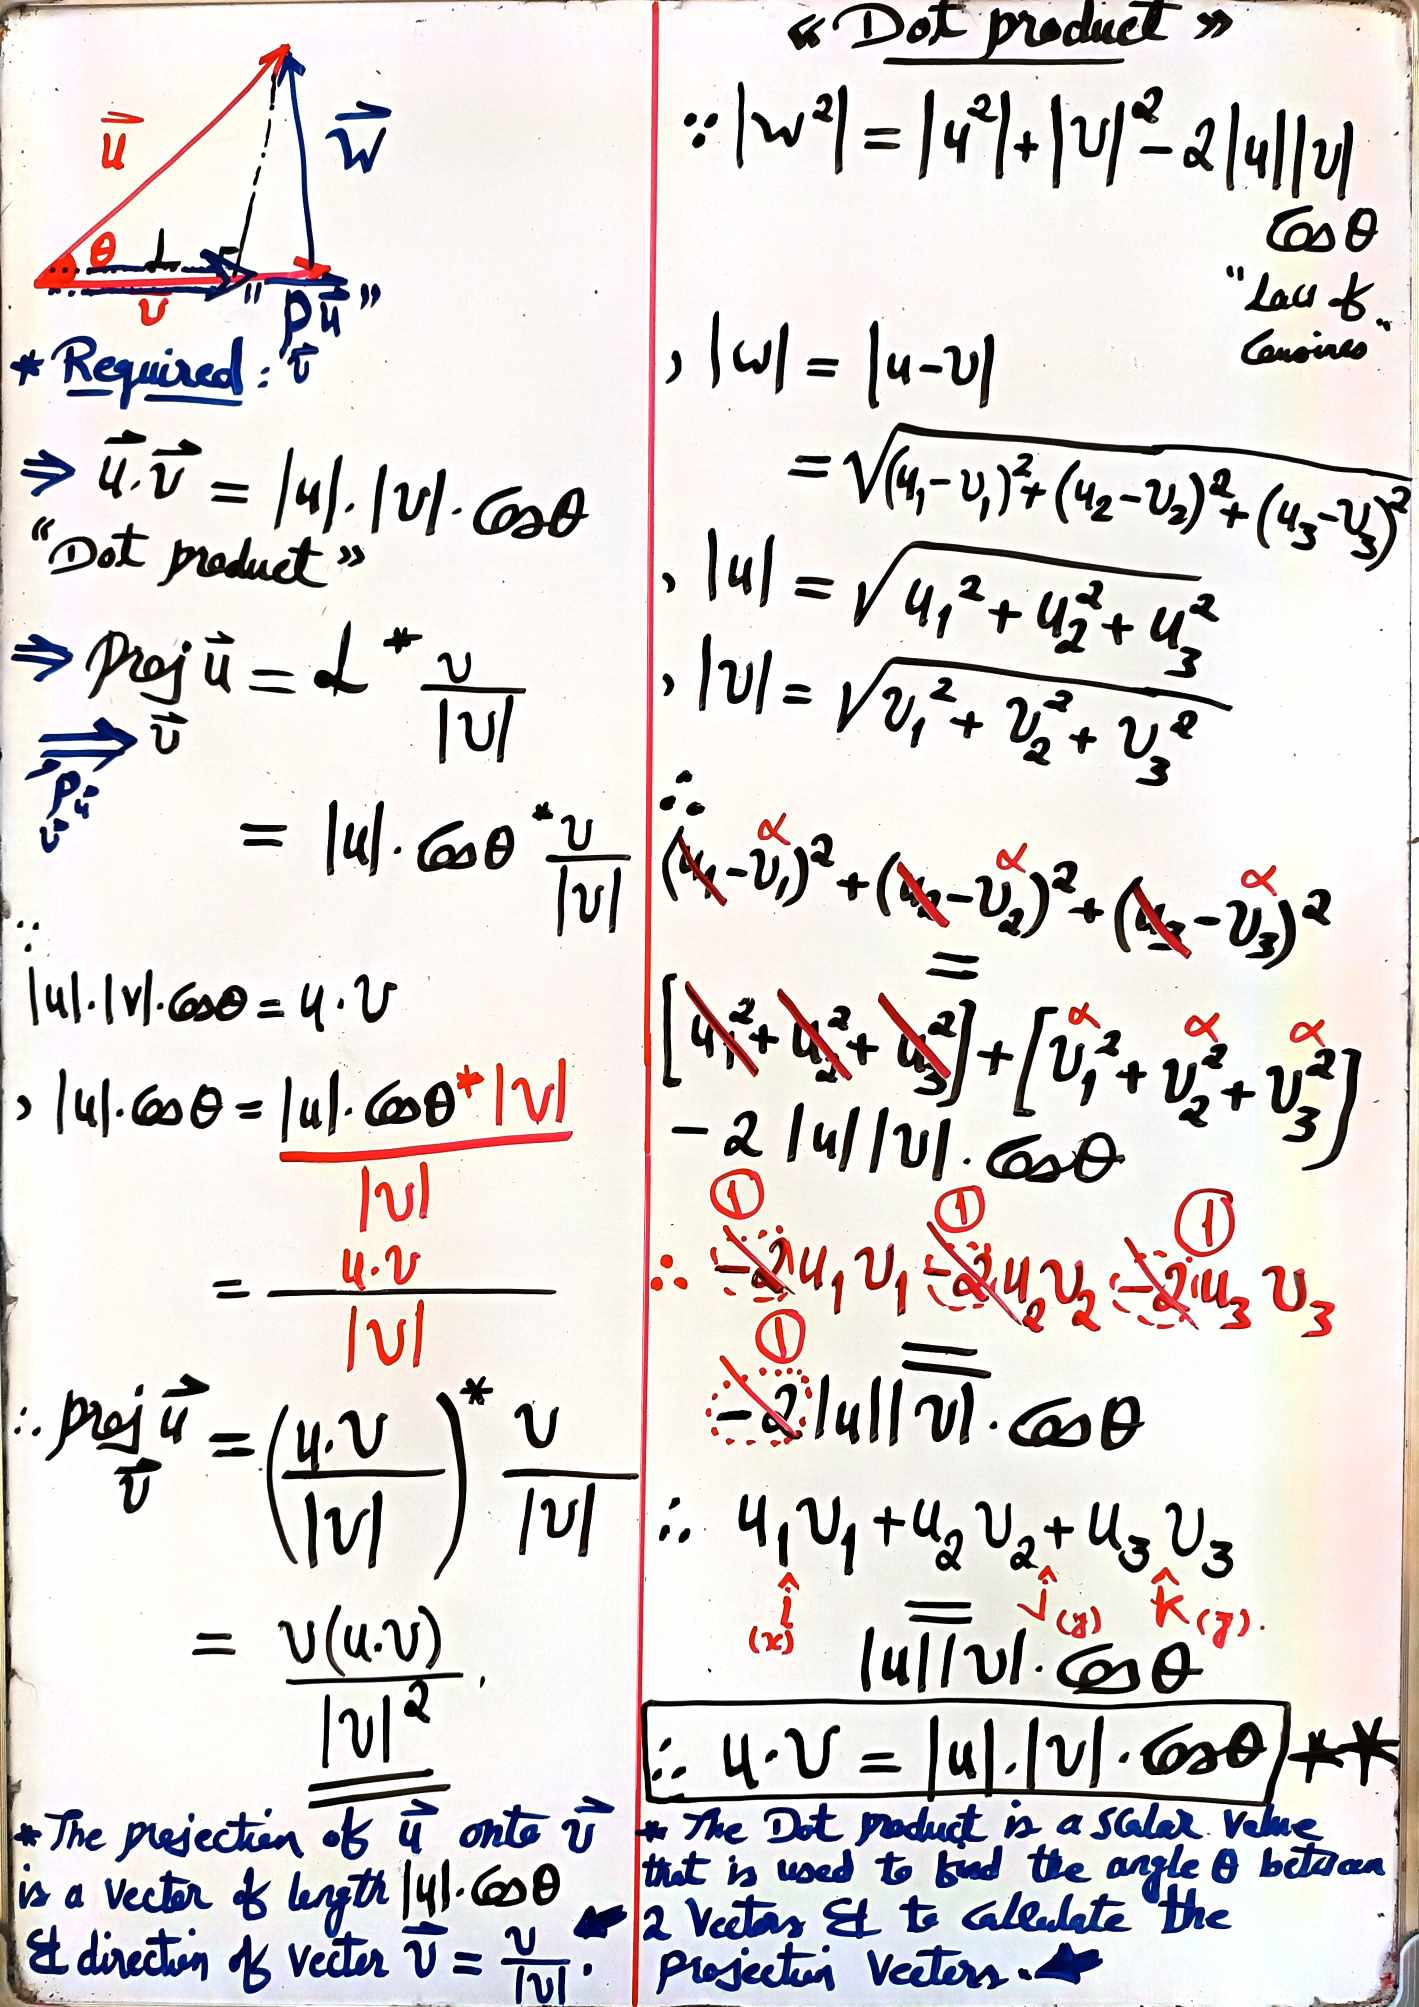 u⃗
w⃗
θ
L
v
"P u⃗"
v⃗
* Required:
⇒ u⃗.v⃗ = |u|.|v|.Cosθ
"Dot product"
⇒ proj u⃗ = L * v/|v|
v⃗
P u⃗
v⃗
= |u|.Cosθ * v/|v|
∵
|u|.|v|.Cosθ = u.v
, |u|.Cosθ = |u|.Cosθ*|v|/|v|
= u.v/|v|
∴ proj u⃗ = (u.v/|v|) * v/|v|
v⃗
= v(u.v)/|v|².
* The projection of u⃗ onto v⃗
is a vector of length |u|.Cosθ
& direction of vector v⃗ = v/|v|.
"Dot product"
∵ |w²| = |u²| + |v|² - 2|u||v|
Cosθ
"Law of
Cosines"
, |w| = |u-v|
= √(u₁-v₁)²+(u₂-v₂)²+(u₃-v₃)²
, |u| = √u₁²+u₂²+u₃²
, |v| = √v₁²+v₂²+v₃²
∴
α α α
(u₁-v₁)²+(u₂-v₂)²+(u₃-v₃)²
=
α α α
[u₁²+u₂²+u₃²]+[v₁²+v₂²+v₃²]
- 2 |u||v|.Cosθ
① ① ①
∴ -2u₁v₁-2u₂v₂-2u₃v₃
=
①
-2|u||v|.Cosθ
∴ u₁v₁+u₂v₂+u₃v₃
î ĵ k̂
(x) (y) (z).
=
|u||v|.Cosθ
∴ u.v = |u|.|v|.Cosθ **
* The Dot product is a scalar value
that is used to find the angle θ between
2 Vectors & to calculate the
projection vectors.